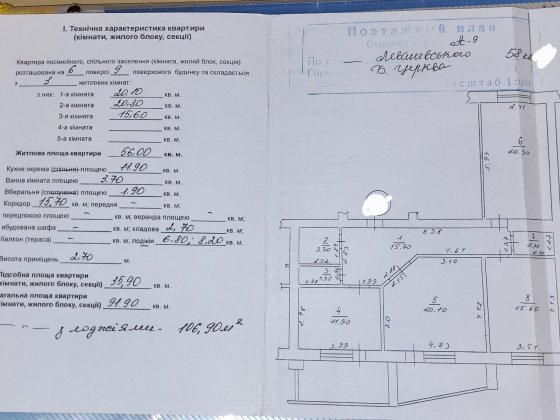 І. Технічна характеристика квартири
(кімнати, жилого блоку, секції)
Квартира посімейного, спільного заселення (кімната, жилий блок, секція)
розташована на 6 поверсі 9 поверхового будинку та складається
з 3 житлових кімнат:
з них: 1-а кімната 20.10 кв. м.
2-а кімната 20.30 кв. м.
3-я кімната 15,60 кв. м.
4-а кімната – кв. м.
5-а кімната кв. м.
Житлова площа квартири 56.00 кв. м.
Кухня окрема (спільна) площею 11.90 кв. м.
Ванна кімната площею 3.70 кв. м.
Вбиральня (сполучена) площею 1.90 кв. м.
Коридор 15,70 кв. м; передня – кв. м;
передпокою площею – кв. м; веранда площею – кв. м;
вбудована шафа – кв. м; кладова 2,70 кв. м;
балкон (тераса) – кв. м; лоджія 6.80; 8.20 кв. м.
Висота приміщень 2.70 м.
Підсобна площа квартири
(кімнати, жилого блоку, секції) 35,90 кв. м.
загальна площа квартири
(кімнати, жилого блоку, секції) 91.90 кв. м.
— " — з лоджіями - 106,90 м²
Поэтажный план
А-9
По у — Леваневського 58 кв
Гор Б. Церква
масштаб 1:00
2.41
6
20.30
5.46
8.38
2
3.70
1
15.70
4.61
1.37
7
2.70
3
1.90
1.99
3.10
4
11.90
2.98
3.99
5
20.10
4.23
8
15.60
3.51